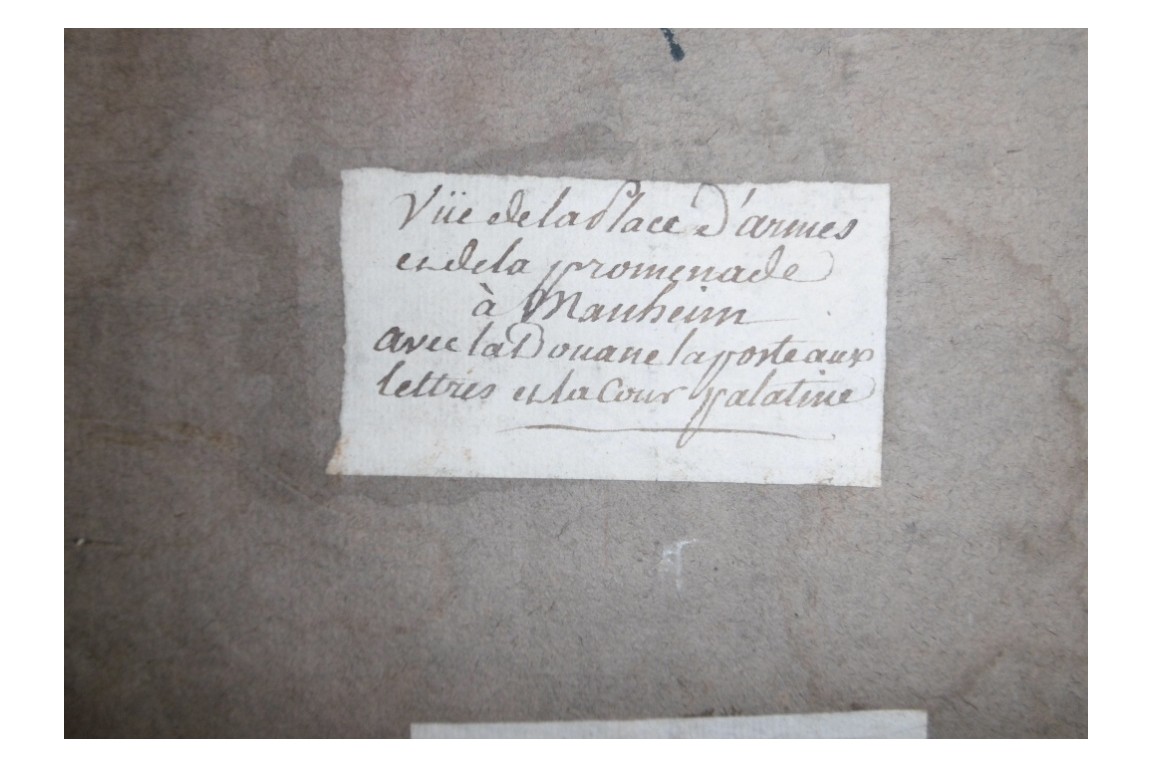 Vüe de la Place D'armes
et de la promenade
à Manheim
avec la Douane la poste aux
lettres et la Cour palatine